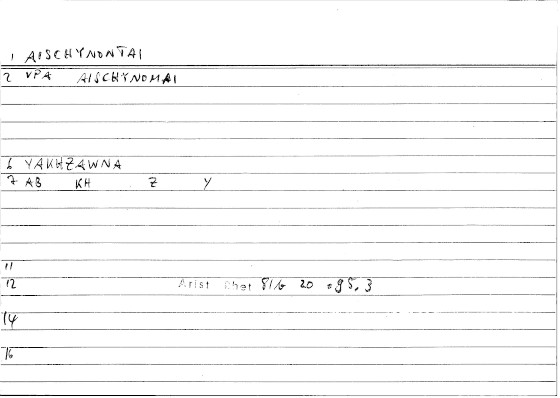 1 AISCHYNONTAI
2 VPA AISCHYNOMAI
6 YAKHZAWNA
7 AB KH Z Y
11
12 Arist Rhet 81b 20 = 98, 3
14
16